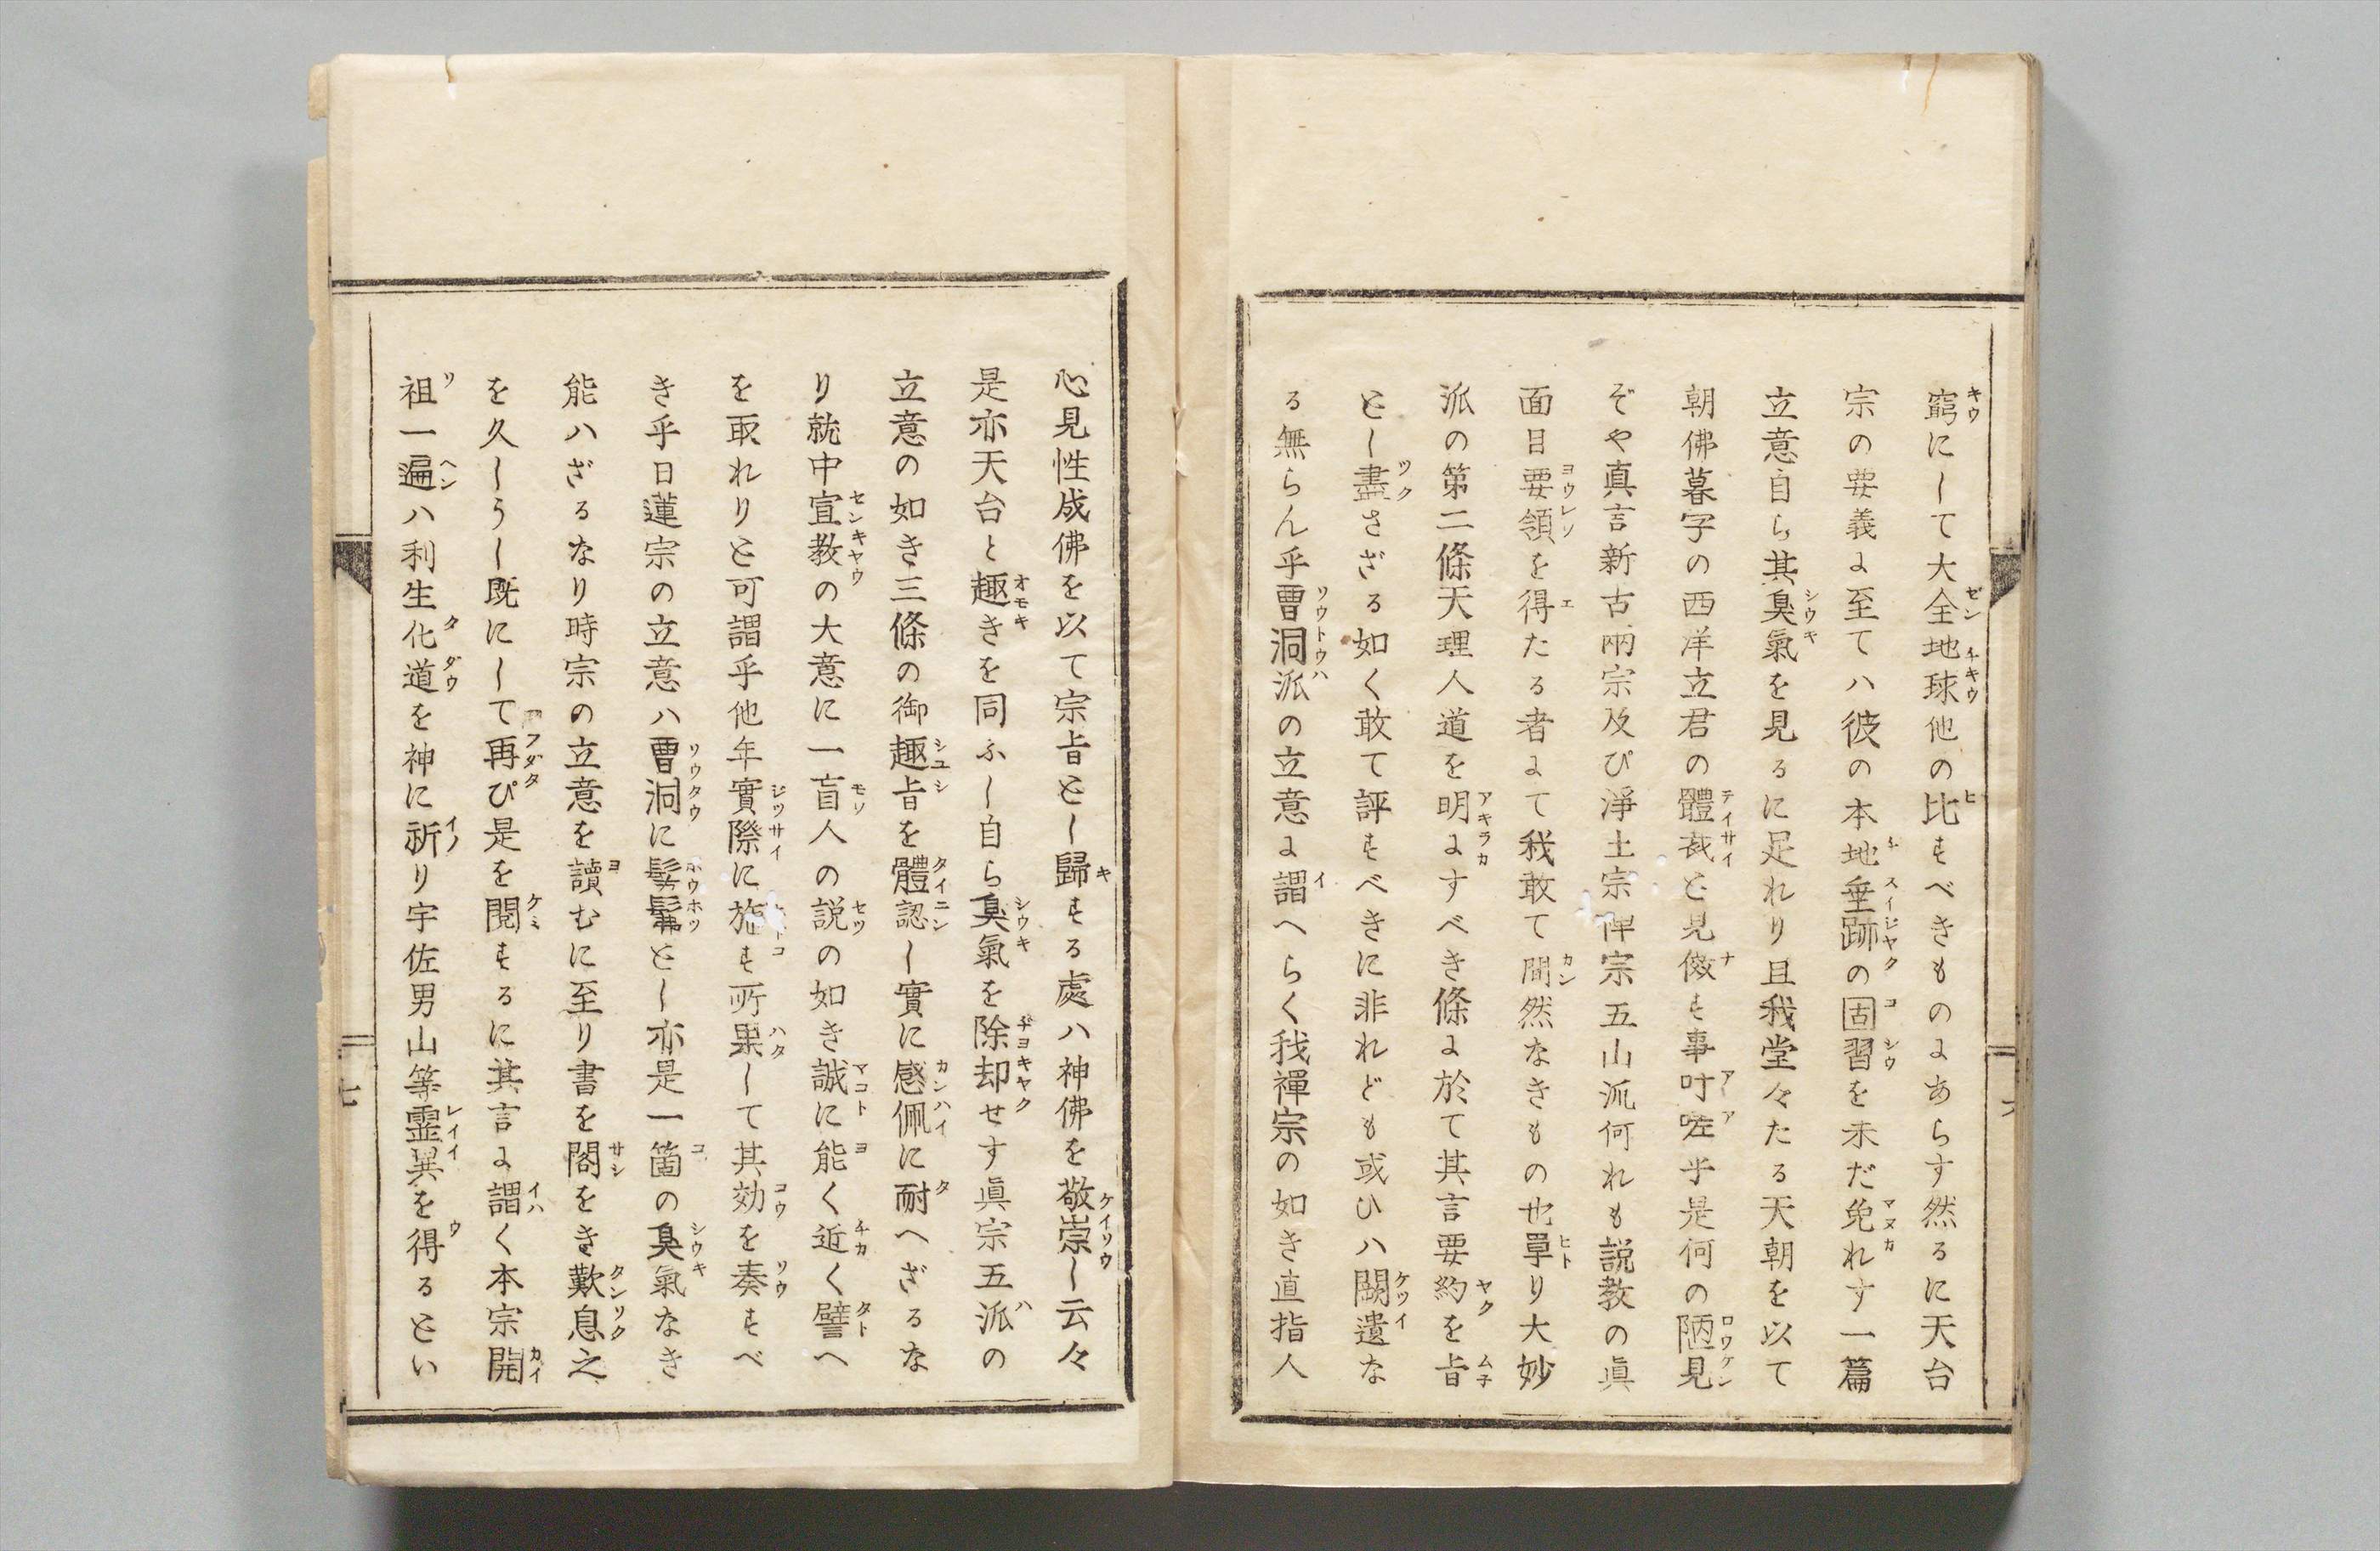 窮にして大全地球他の比すべきものにあらす然るに天台
宗の要義に至てハ彼の本地垂跡の固習を未だ免れす一篇
立意自ら其臭氣を見るに足れり且我堂々たる天朝を以て
朝佛暮字の西洋立君の體裁と見做す事吁嗟乎是何の陋見
ぞや真言新古兩宗及び淨土宗禅宗五山派何れも説教の眞
面目要領を得たる者にて我敢て間然なきもの也單り大妙
派の第二條天理人道を明にすべき條に於て其言要約を旨
とし盡さざる如く敢て評すべきに非れども或ひハ闕遺な
る無らん乎曹洞派の立意に謂へらく我禪宗の如き直指人
心見性成佛を以て宗旨とし歸する處ハ神佛を敬崇し云々
是亦天台と趣きを同ふし自ら臭氣を除却せす眞宗五派の
立意の如き三條の御趣旨を體認し實に感佩に耐へざるな
り就中宣教の大意に一盲人の説の如き誠に能く近く譬へ
を取れりと可謂乎他年實際に施す所果して其効を奏すべ
き乎日蓮宗の立意ハ曹洞に髣髴とし亦是一箇の臭氣なき
能ハざるなり時宗の立意を讀むに至り書を閣をき歎息之
を久しうし既にして再び是を閲するに其言に謂く本宗開
祖一遍ハ利生化道を神に祈り宇佐男山等霊異を得るとい
七